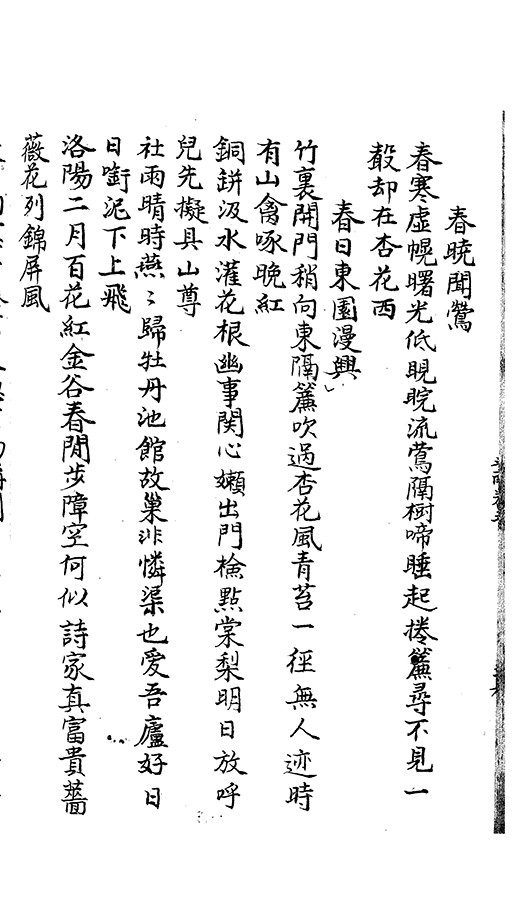 春曉聞鶯
春寒虛幌曙光低睍睆流鶯隔樹啼睡起捲簾尋不見一
聲却在杏花西
春日東園漫興
竹裏開門稍向東隔簾吹過杏花風青苔一徑無人迹時
有山禽啄晚紅
銅缾汲水灌花根幽事関心嬾出門檢點棠梨明日放呼
兒先擬具山尊
社雨晴時燕〻歸牡丹池館故巢非憐渠也愛吾廬好日
日啣泥下上飛
洛陽二月百花紅金谷春閒步障空何似詩家真富貴薔
薇花列錦屏風